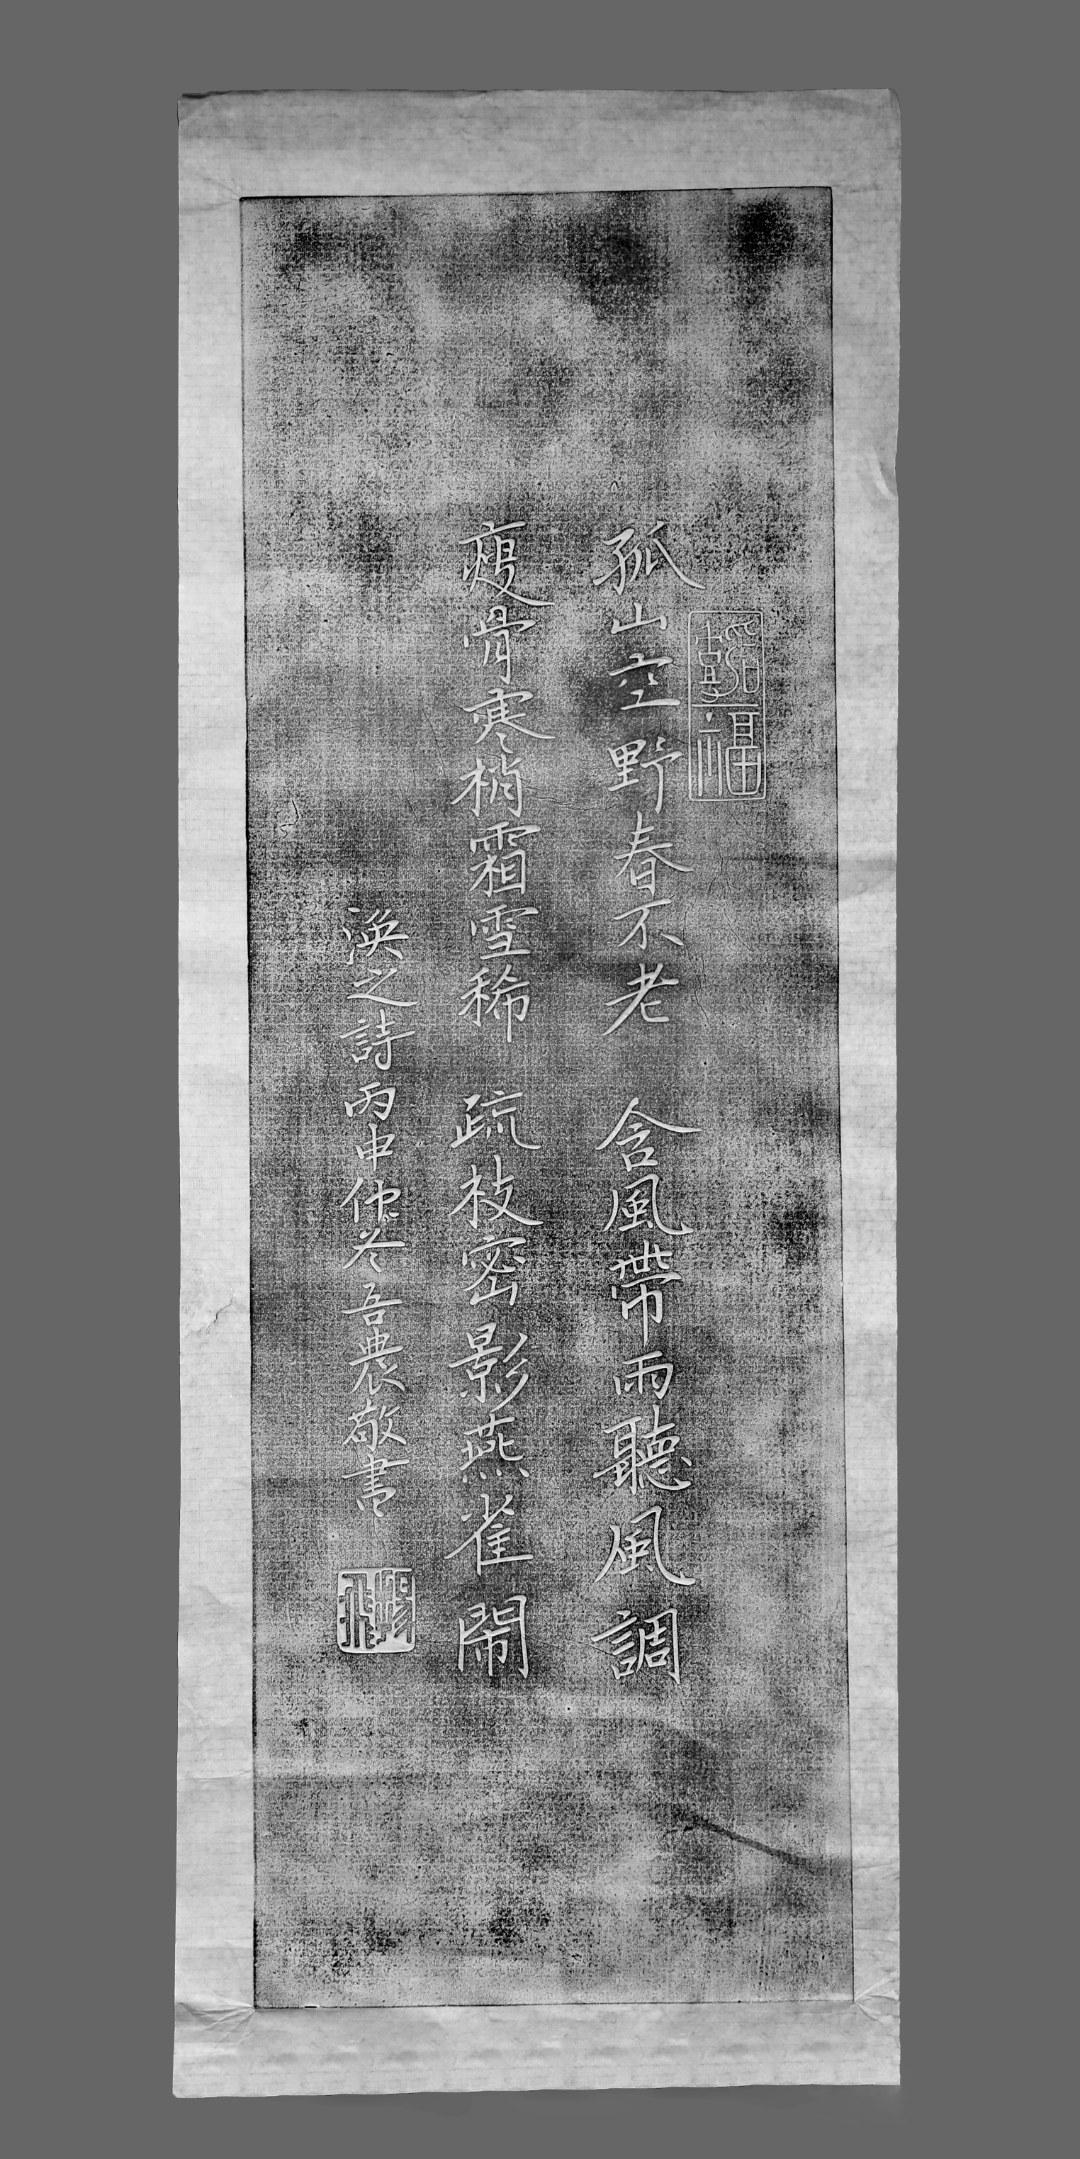 孤山空野春不老 含風帶雨聽風調
瘦骨寒梢霜雪稀 疏枝密影燕雀鬧
渙之詩丙申仲冬吾農敬書